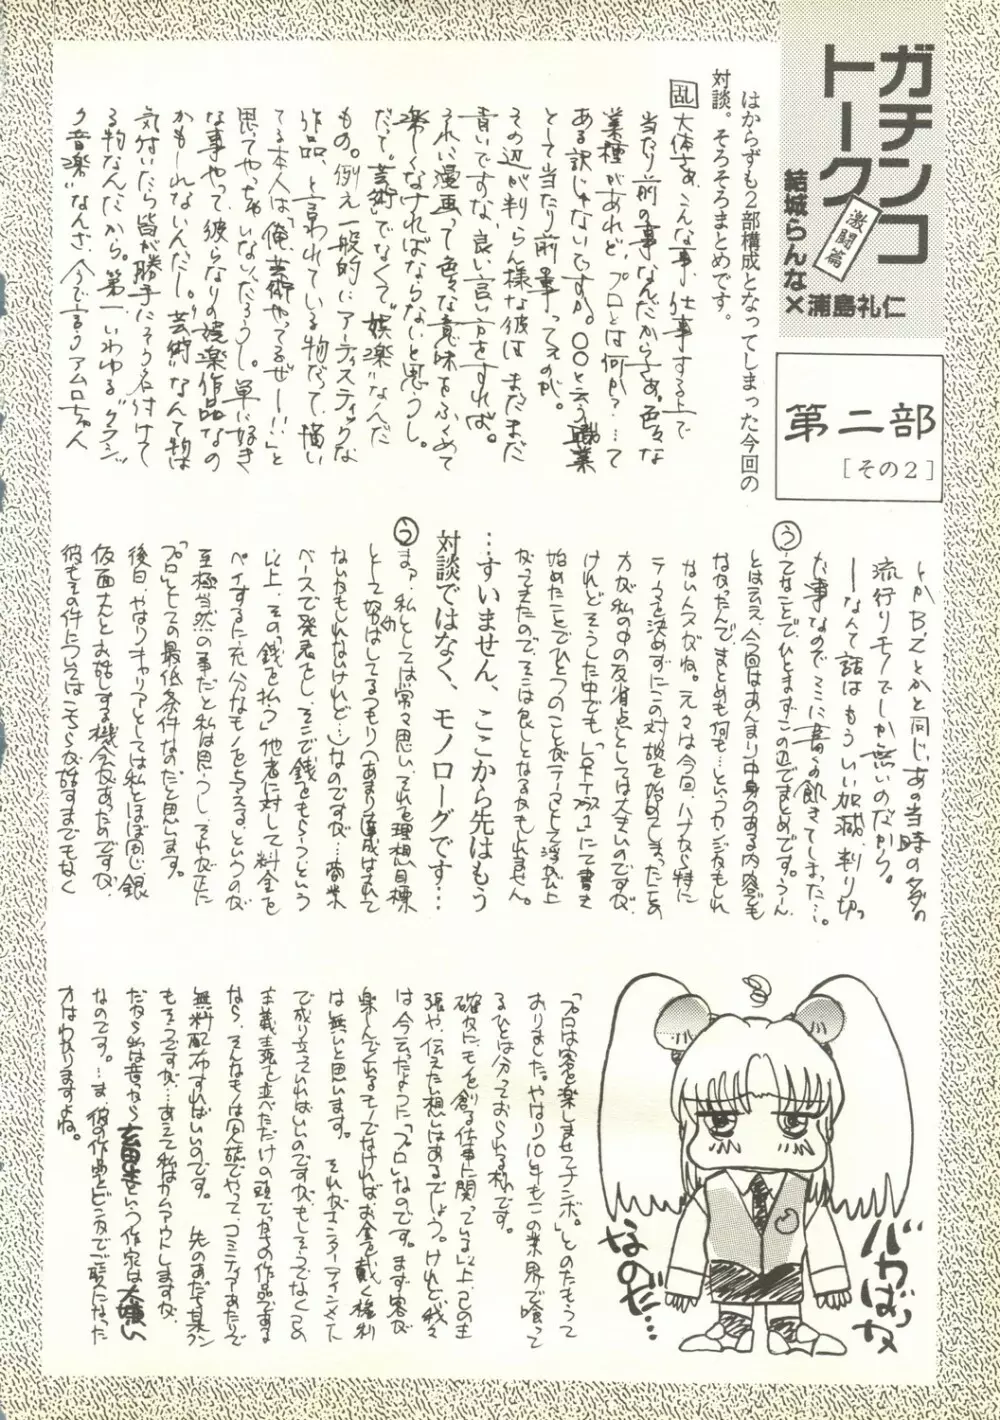 ガチンコ
トーク
激闘篇
結城らんな×浦島礼仁
第二部
[その2]
はからずも2部構成となってしまった今回の
対談。そろそろまとめです。
乱 大体さぁ、こんな事、仕事する上で
当たり前の事なんだからさぁ。色々な
業種があれど、プロとは何か?…って
ある訳じゃないですか。〇〇と云う職業
として当たり前事ってえのが。
その辺が判らん様な彼は、まだまだ
青いですな、良い言い方をすれば。
それに漫画って色々な意味をふくめて
楽しくなければならないと思うし。
だって。芸術"でなくて"娯楽"なんだ
もの。例え一般的にアーティスティックな
作品、と言われている物だって、描い
てる本人は「俺、芸術やってるぜー!!」と
思ってやっちゃいないだろうし。単に好き
な事やって、彼らなりの娯楽作品なの
かもしれないんだし。"芸術"なんて物は
気付いたら皆が勝手にそう名付けて
る物なんだから。第一、いわゆる"クラシッ
ク音楽"なんざ、今で言うアムロちゃん
とかB'zとかと同じ、あの当時のタダの
流行りモノでしか無いのだから。
ーなんて話はもういい加減、判り切っ
た事なので、ここに書くの飽きてしまった…。
う てなことで、ひとまずこの辺でまとめです。うーん
とはいえ、今回はあんまり中身のある内容でも
なかったんで、まとめも何も…といったカンジかもしれ
ないんスがね。元々は今回、ハナから特に
テーマを決めずにこの対談を始めてしまったことの
方が私の中の反省点としては大きいのですが、
けれどそうした中でも「L.E.+プラス1」にて書き
始めたことでひとつのことがテーマとして浮かび上
がってきたので、そこは良しとなるかもしれません。
…すいません、ここから先はもう
対談ではなく、モノローグです…
う まァ、私としては常々思い、それを理想・目標
として努力はしてるつもり(あまり達成はされて
ないかもしれないけれど…)なのですが…商業
ベースで発表をし、そこで銭をもらうという
以上、その「銭を払う」他者に対して料金を
ペイするに充分なモノを与えるというのが
至極当然の事だと私は思うし、それが正に
「プロ」としての最低条件なのだと思います。
後日、やはりキャリアとしては私とほぼ同じ銀
仮面犬とお話しする機会があったのですが、
彼もその件については、こちらが話すまでもなく
「プロは客を楽しませてナンボ。」とのたもうて
おりました。やはり10年もこの業界で喰って
るひとは分っておられる。そういうことです。
確かにモノを創る仕事に関っている以上、己の主
張や、伝えたい想いはあるでしょう。けれど、我々
は今言ったように「プロ」なのです。まず客が
楽しんでくれるモノでなければお金を戴く権利
は無いと思います。それがエンターテインメント
で成り立っていればいいのですが、もしそうでなく己の
主義主張を並べただけの頭でっかちの作品である
なら、そんなものは同人誌でやって、コミティアあたりで
無料配布すればいいのです。先のあだち某クン
もそうですが…あえて私はカムアウトしますが、
だから私は昔から
という作家は大嫌い
なのです。…ま、彼の作品とビンカで一読になった
方はわかりますよね。
バカばっか
なのだ…